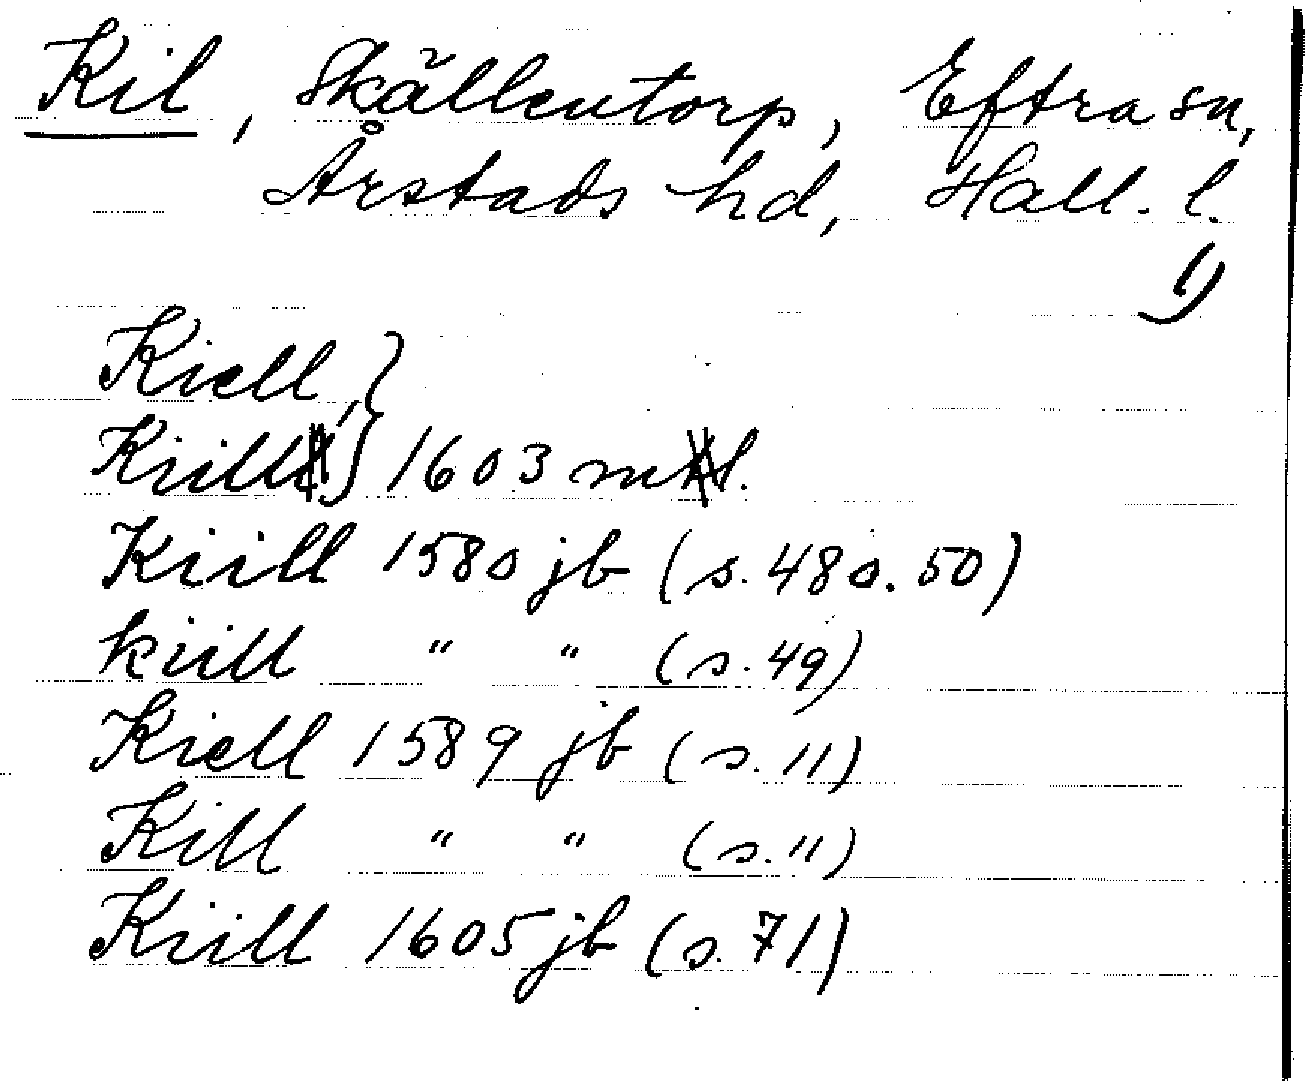 Kil, Skällentorp, Eftra sn,
Årstads hd, Hall. l.
1)
Kiell, }
Kiill } 1603 ml.
Kiill 1580 jb (s. 48 o. 50)
kiill " " (s. 49)
Kiell 1589 jb (s. 11)
Kill " " (s. 11)
Kiill 1605 jb (s. 71)